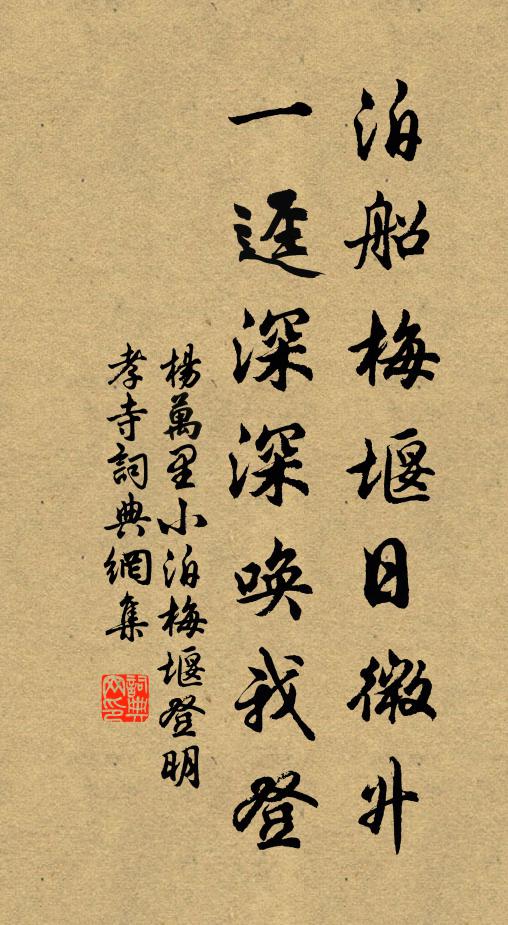 泊船梅堰日微升
一逕深深喚我登
楊萬里小泊梅堰登明
孝寺詞典網集
詞典
网印